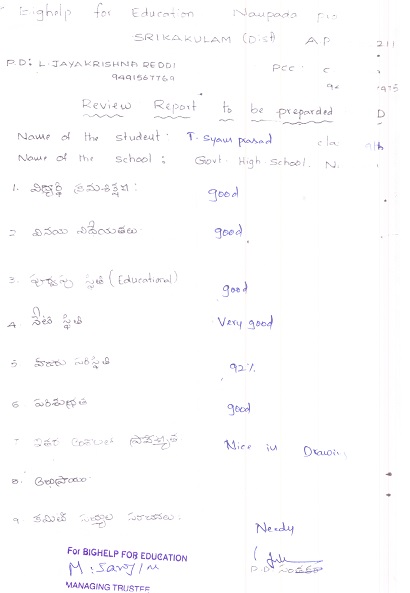 Bighelp for Education Naupada
SRIKAKULAM (Dist) AP 211
P.D: L. JAYAKRISHNA REDDI PCC: C
9491567769
Review Report to be preparded
Name of the student: T. Syam prasad
Name of the school: Govt. High School. N.
1. విద్యార్థి క్రమశిక్షణ: good
2 వినయ విధేయతలు good
3. (Educational) good
4 నైతిక స్థితి Very good
5 హాజరు పరిస్థితి 92%
6 పరిశుభ్రత good
7 ఇతర Nice in Drawin
8. అభిప్రాయం
9 కమిటి సభ్యుల సూచనలు. Needy
P.D సంతకం
For BIGHELP FOR EDUCATION
MANAGING TRUSTEE